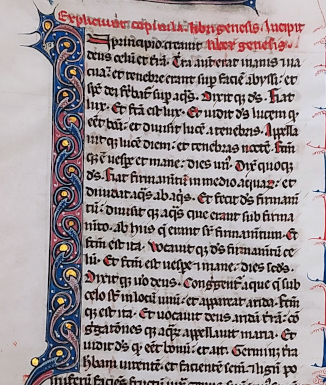 Expliciunt capitula libri genesis. Incipit
In principio creauit liber genesis.
deus celũ et trã. Trã aũt erat inanis ⁊ ua
cua: et tenebre erant sup faciẽ abyssi: et
spc dei ferebat᷑ sup aqs. Dixit qꝫ ds. Fiat
lux. Et fcã est lux. Et uidit ds lucem q
eẽt bõa: et diuisit lucẽ a tenebris. Appella
uit qꝫ lucẽ diem: et tenebras noctẽ. Fcm
qꝫ ẽ uespe et mane: dies un᷒. Dix̃ quoqꝫ
ds. Fiat firmamtũ in medio aquaꝝ: et
diuidat aqs ab aqs. Et fecit ds firmam
tũ: diuisit qꝫ aqs que erant sub firma
mto. ab hiis q̃ erant sr firmamtum. Et
fcm est ita. Vocauit qꝫ ds firmamtũ ce
lũ. Et fcm est uespe ⁊ mane: dies scds.
Dixit qꝫ uo deus. Congregent᷑ aque q̃ sub
celo st̃ in locũ unũ: et appareat arida. fcm
qꝫ est ita. Et uocauit deus aridã trã: cõ
gregationes qꝫ aqꝝ appellauit maria. Et
uidit ds q eẽt bonũ. et ait. Germinet trã
hbam uirentẽ et facientẽ semẽ: lignũ po